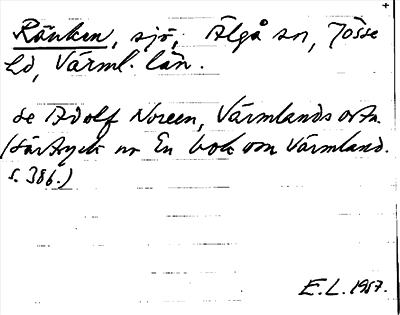 Ränken, sjö, Älgå sn, Jösse
hd, Värml. län.
se Adolf Noreen, Värmlands ortn.
(Särtryck ur En bok om Värmland.
s. 386.)
E.L. 1957.